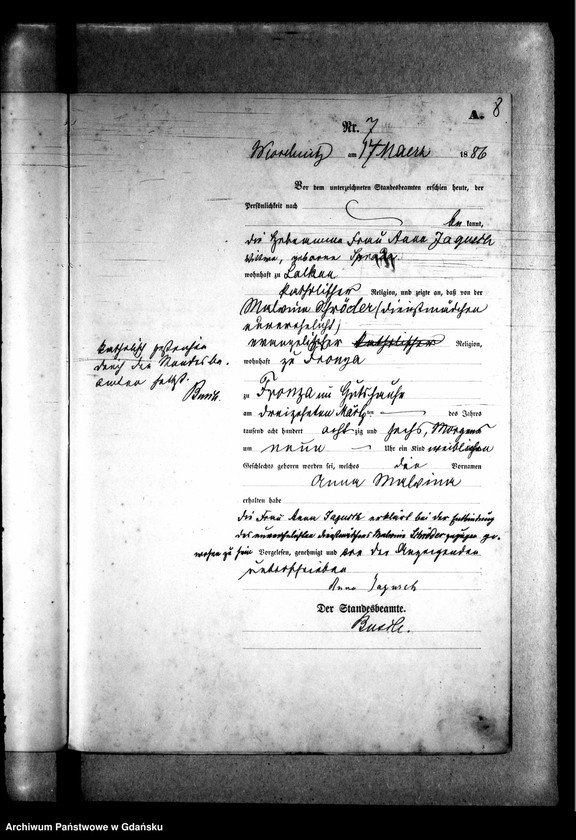 A. 8
Nr. 7
am 17 Maerz 1886
Vor dem unterzeichneten Standesbeamten erschien heute, der
Persönlichkeit nach
be kannt,
die Hebeamme Frau Anna Jagusch
Wittwe, geborene
wohnhaft zu Lalkau
katholischer Religion, und zeigte an, daß von der
Malvina Schröder (Dienstmädchen
unverehelicht)
evangelischer katholischer Religion,
wohnhaft zu Fronza
katholisch gestrichen
durch den Standesbe-
amten selbst.
zu Fronza im Gutshause
am dreizehnten März des Jahres
tausend acht hundert achtzig und sechs, Morgens
um neun Uhr ein Kind weiblichen
Geschlechts geboren worden sei, welches den Vornamen
Anna Malvina
erhalten habe
Die Frau Anna Jagusch erklärt bei der Entbindung
der unverehelichten Dienstmädchens Malvina Schröder zugegen ge-
wesen zu sein Vorgelesen, genehmigt und von der Anzeigenden
unterschrieben
Anna Jagusch
Der Standesbeamte.
Archiwum Państwowe w Gdańsku